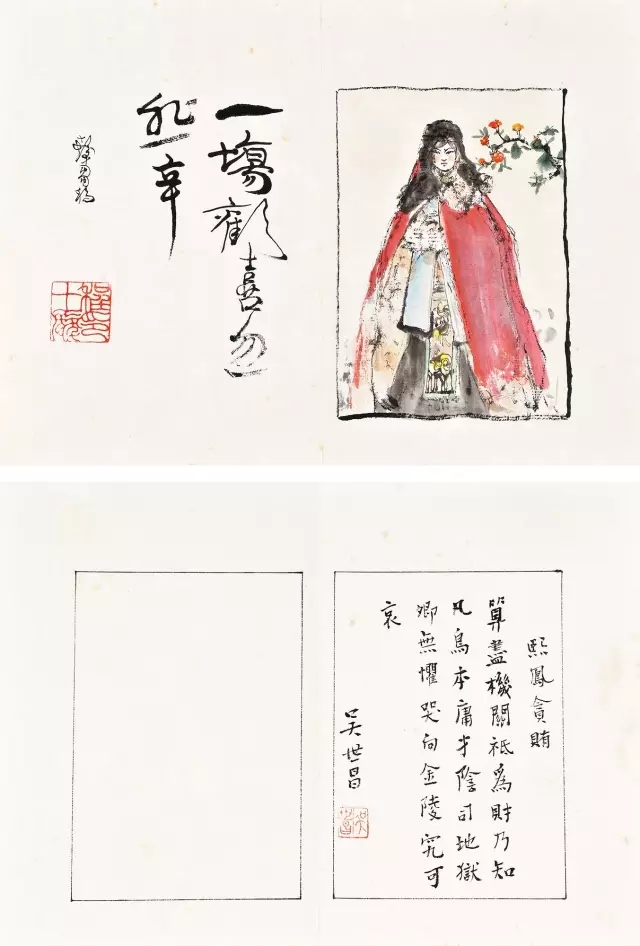 一場歡喜忽
悲辛
程印十髮
熙鳳貪賄
算盡機關祗爲財乃知
凡鳥本庸才陰司地獄
卿無懼哭向金陵究可
哀
吳世昌